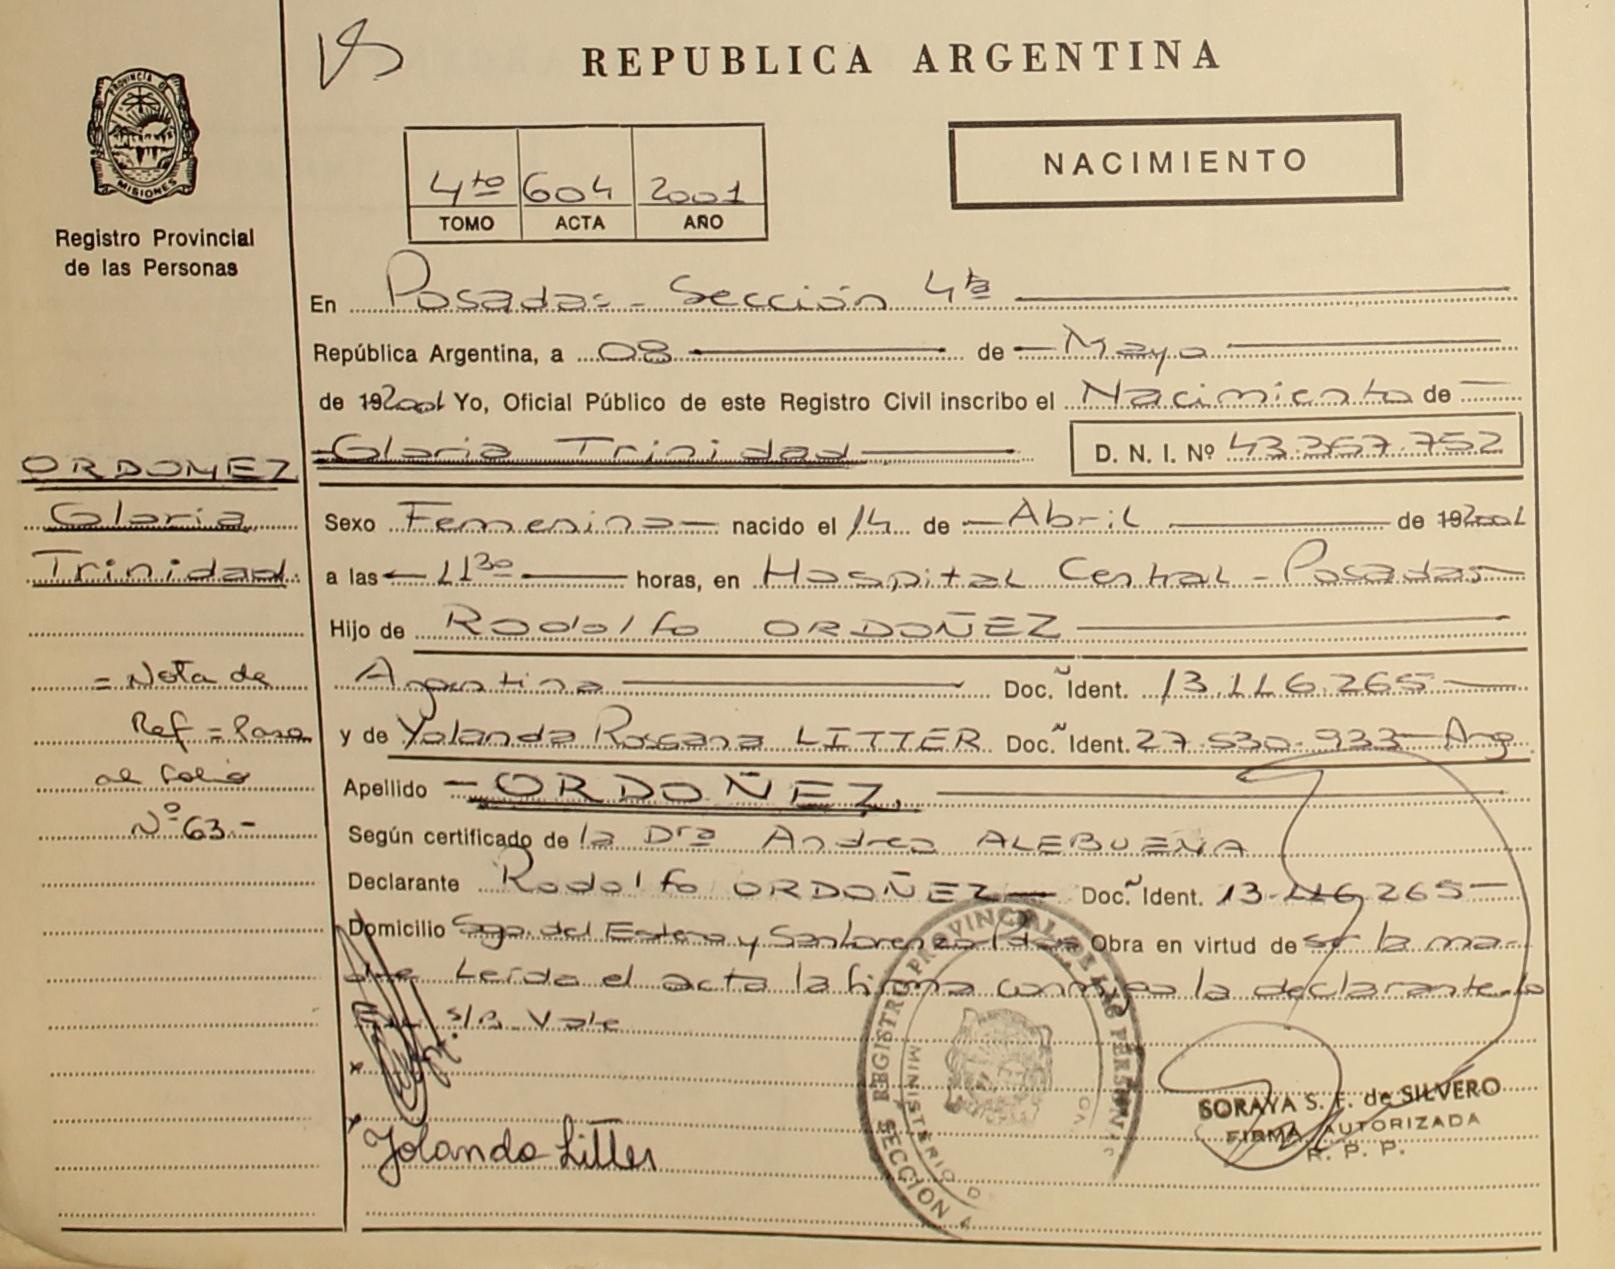 REPUBLICA ARGENTINA
PROVINCIA DE
MISIONES
Registro Provincial
de las Personas
4to 604 2001
TOMO ACTA AÑO
NACIMIENTO
En Posadas - Sección 4ta
República Argentina, a 08 de Mayo
de 192001 Yo, Oficial Público de este Registro Civil inscribo el Nacimiento de
Gloria Trinidad D. N. I. Nº 43.367.752
Sexo Femenina nacido el 14 de Abril de 192001
a las 11 30 horas, en Hospital Central - Posadas
Hijo de Rodolfo ORDOÑEZ
Argentina Doc. Ident. 13.116.265
y de Yolanda Rossana LITTER Doc. Ident. 27.530.933 - Arg
Apellido ORDOÑEZ
Según certificado de la Dra Andrea ALEBUENA
Declarante Rodolfo ORDOÑEZ Doc. Ident. 13.116.265
Domicilio Sgo. del Estero y San Lorenzo Pdas Obra en virtud de ser la ma-
dre Leída el acta la firma conmigo la declarante lo
s/R. Vale
Yolanda Litter
ORDOMEZ
Gloria
Trinidad
= Nota de
Ref = Pasa
al folio
Nº 63.-
REGISTRO PROVINCIAL DE LAS PERSONAS
MINISTERIO D
SECCION 4
SORAYA S. F. de SILVERO
FIRMA AUTORIZADA
R. P. P.